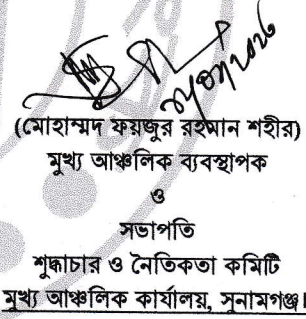 (মোহাম্মদ ফয়জুর রহমান শহীর)
মুখ্য আঞ্চলিক ব্যবস্থাপক
ও
সভাপতি
শুদ্ধাচার ও নৈতিকতা কমিটি
মুখ্য আঞ্চলিক কার্যালয়, সুনামগঞ্জ।